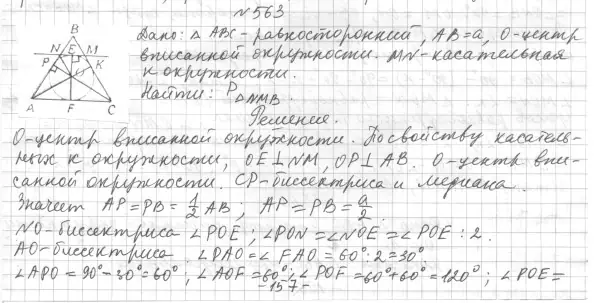 №563
B
N E M
P K
O
A F C
Дано: △ ABC - равносторонний, AB=a, O-центр
вписанной окружности. MN-касательная
к окружности.
Найти: P△NMB.
Решение.
O-центр вписанной окружности. По свойству касатель-
ных к окружности, OE⊥NM, OP⊥AB. O-центр впи-
санной окружности. CP-биссектриса и медиана.
Значит AP=PB=1/2 AB; AP=PB=a/2.
NO-биссектриса ∠POE; ∠PON=∠NOE=∠POE:2.
AO-биссектриса. ∠PAO=∠FAO=60°:2=30°.
∠APO=90°-30°=60°; ∠AOF=60°; ∠POF=60°+60°=120°; ∠POE=
-157-